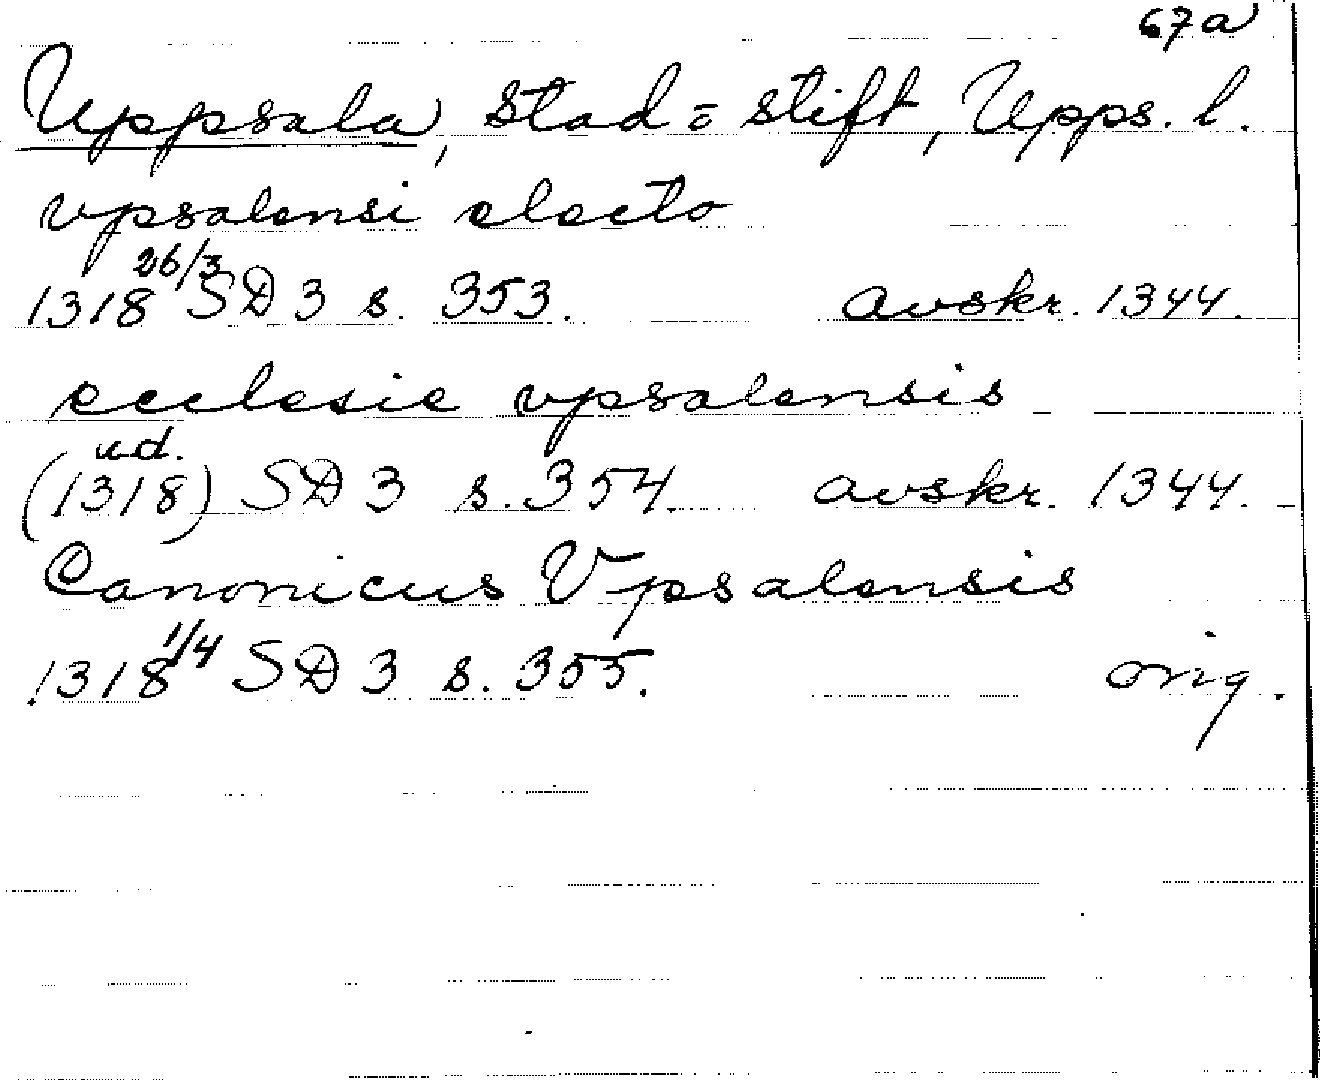 67a
Uppsala, stad o stift, Upps. l.
vpsalensi electo
1318 26/3 SD 3 s. 353. avskr. 1344.
ecclesie vpsalensis
(1318) u.d. SD 3 s. 354. avskr. 1344.
Canonicus Vpsalensis
1318 1/4 SD 3 s. 355. orig.